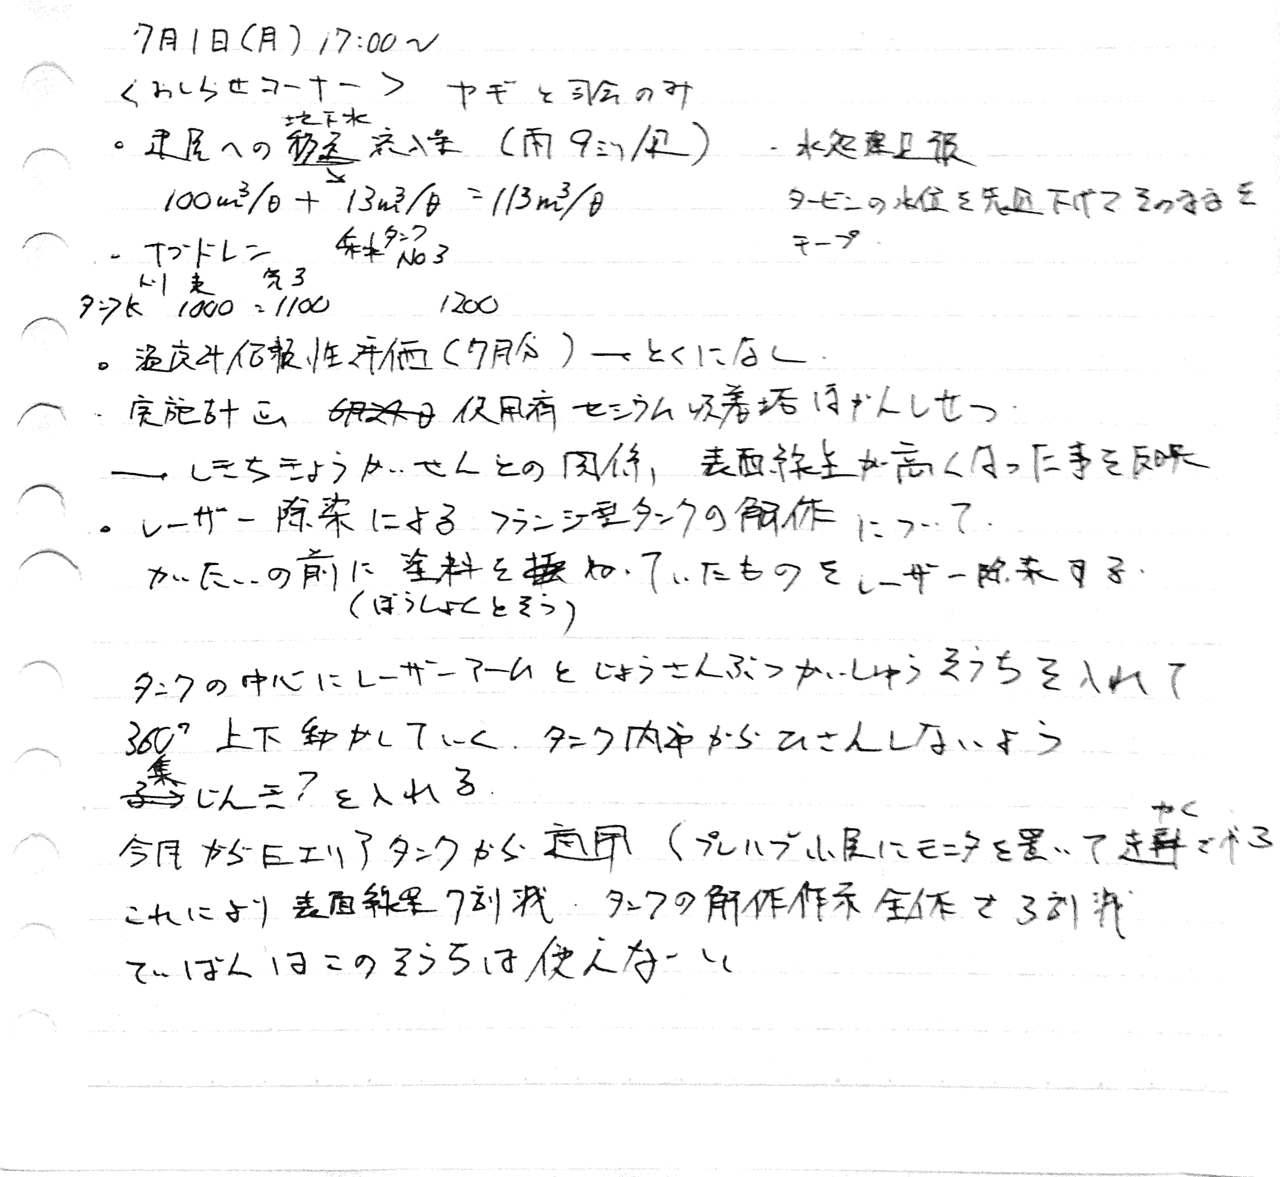 7月1日(月) 17:00〜
<おしらせコーナー> ヤギと司会のみ
。建屋への 地下水 移送 流入量 (雨9ミリ/週)
100m³/日 + 13m³/日 = 113m³/日
・水処理週報
タービンの水位を先週下げてそのままを
キープ
・サブドレン タンク No3
タンク 1000 = 1100 1200
。温度計信頼性評価(7月分) → とくになし.
・実施計画 使用済セシウム吸着塔ほかんしせつ.
→ しきちきょうかいせんとの関係, 表面線量が高くなった事を反映
。レーザー除染によるフランジ型タンクの解体について.
かいたいの前に塗料をぬっていたものをレーザー除染する.
(ぼうしょくとそう)
タンクの中心にレーザーアームとじょうさんぶつかいしゅうそうちを入れて
360° 上下動かしていく. タンク内部からひさんしないよう
集じんき?を入れる.
今月からEエリアタンクから適用 (プレハブ小屋にモニタを置いて遠かくでやる
これにより表面線量7割減. タンクの解体作業全体で3割減
ていばんはこのそうちは使えない